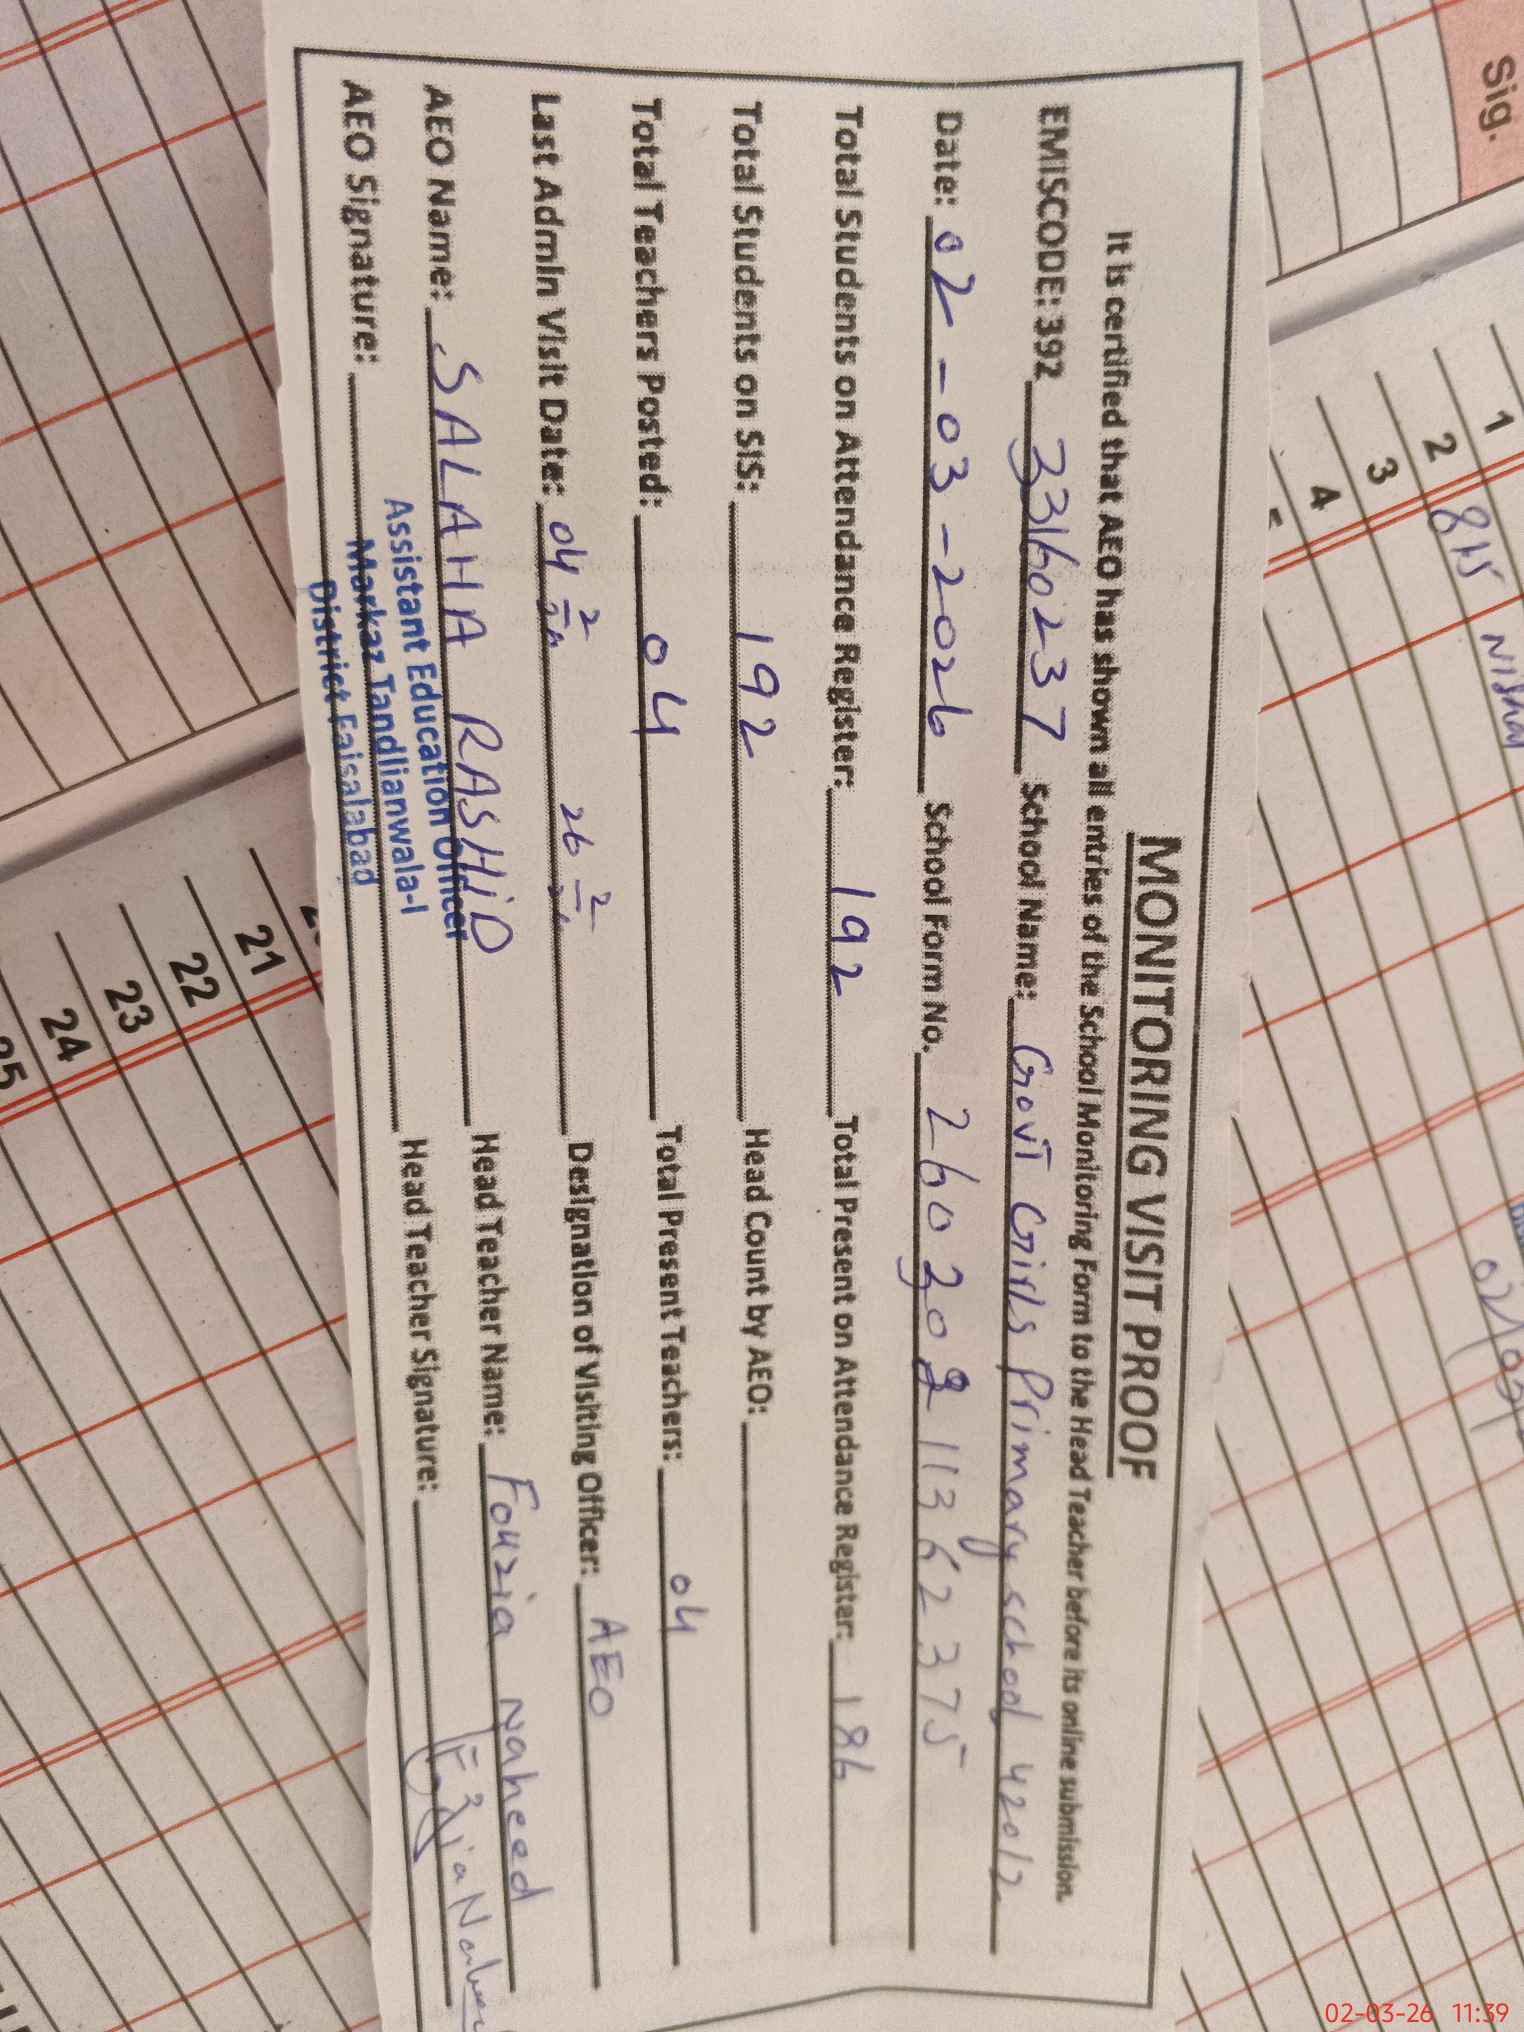 MONITORING VISIT PROOF
It is certified that AEO has shown all entries of the School Monitoring Form to the Head Teacher before its online submission.
EMISCODE: 392 33160237 School Name: Govt Girls Primary school 420 12
Date: 02-03-2026 School Form No. 26030211362375
Total Students on Attendance Register: 192 Total Present on Attendance Register: 186
Total Students on SIS: 192 Head Count by AEO:
Total Teachers Posted: 04 Total Present Teachers: 04
Last Admin Visit Date: 04 2 26 2 Designation of Visiting Officer: AEO
AEO Name: SALAHA RASHID Head Teacher Name: Fouzia Naheed
AEO Signature: Head Teacher Signature: Fouzia
Assistant Education Officer
Markaz Tandlianwala-I
District Faisalabad
Sig.
1
2
3
4
21
22
23
24
25
02-03-26 11:39